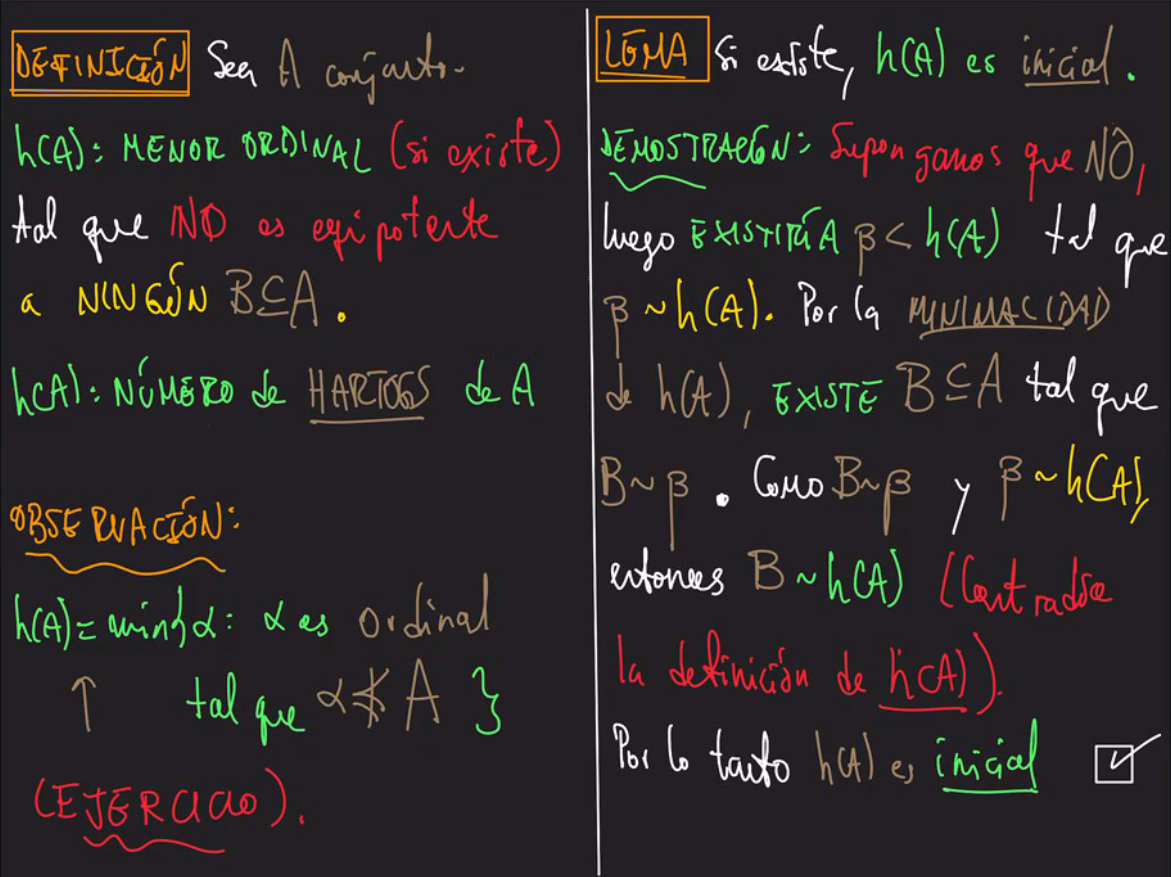 DEFINICIÓN Sea A conjunto.
h(A): MENOR ORDINAL (si existe)
tal que NO es equipotente
a NINGÚN B⊆A.
h(A): NÚMERO de HARTOGS de A
OBSERVACIÓN:
h(A) = min{α: α es ordinal
↑ tal que α⋠A }
(EJERCICIO).
LEMA Si existe, h(A) es inicial.
DEMOSTRACIÓN: Supongamos que NO,
luego EXISTIRÍA β < h(A) tal que
β ~ h(A). Por la MINIMALIDAD
de h(A), EXISTE B⊆A tal que
B~β. Como B~β y β~h(A),
entonces B ~ h(A) (Contradice
la definición de h(A)).
Por lo tanto h(A) es inicial